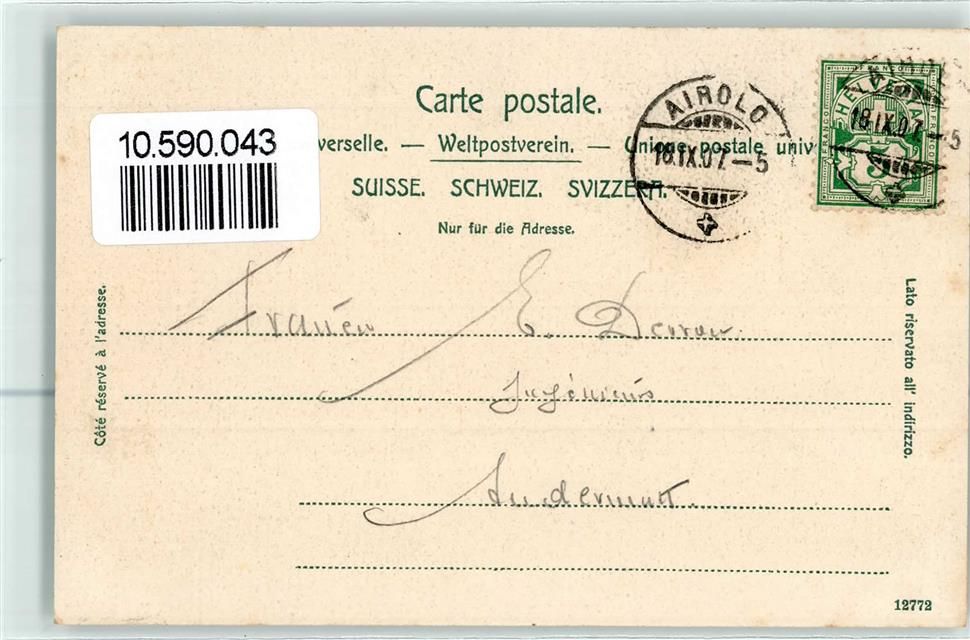 Carte postale.
10.590.043
verselle. — Weltpostverein. — Unione postale univ
SUISSE. SCHWEIZ. SVIZZERA.
Nur für die Adresse.
AIROLO
18.IX.07.—5
HELVETIA
FRANCO
5
18.IX.07.—5
Côté réservé à l'adresse.
Lato riservato all' indirizzo.
E.
Andermatt.
12772